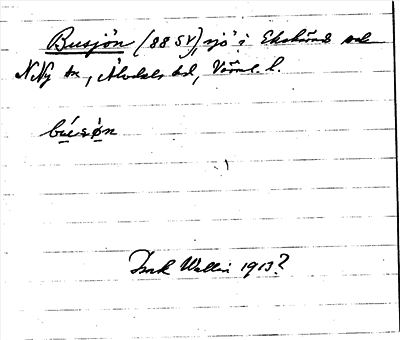 Busjön (88 SV), sjö i Ekshärads och
N Ny sn, Älvdals hd, Värml. l.
bu̱´sø̱n
Isak Wallin 1913?